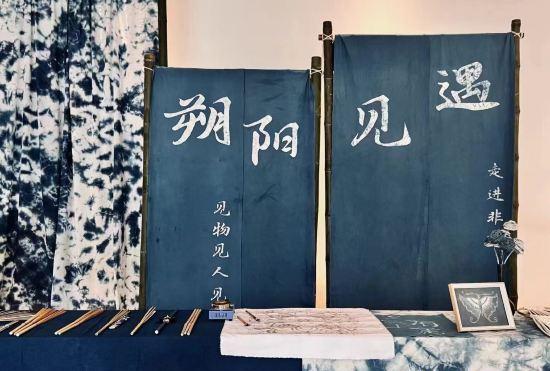 遇见
阳朔
走进非
见物见人见